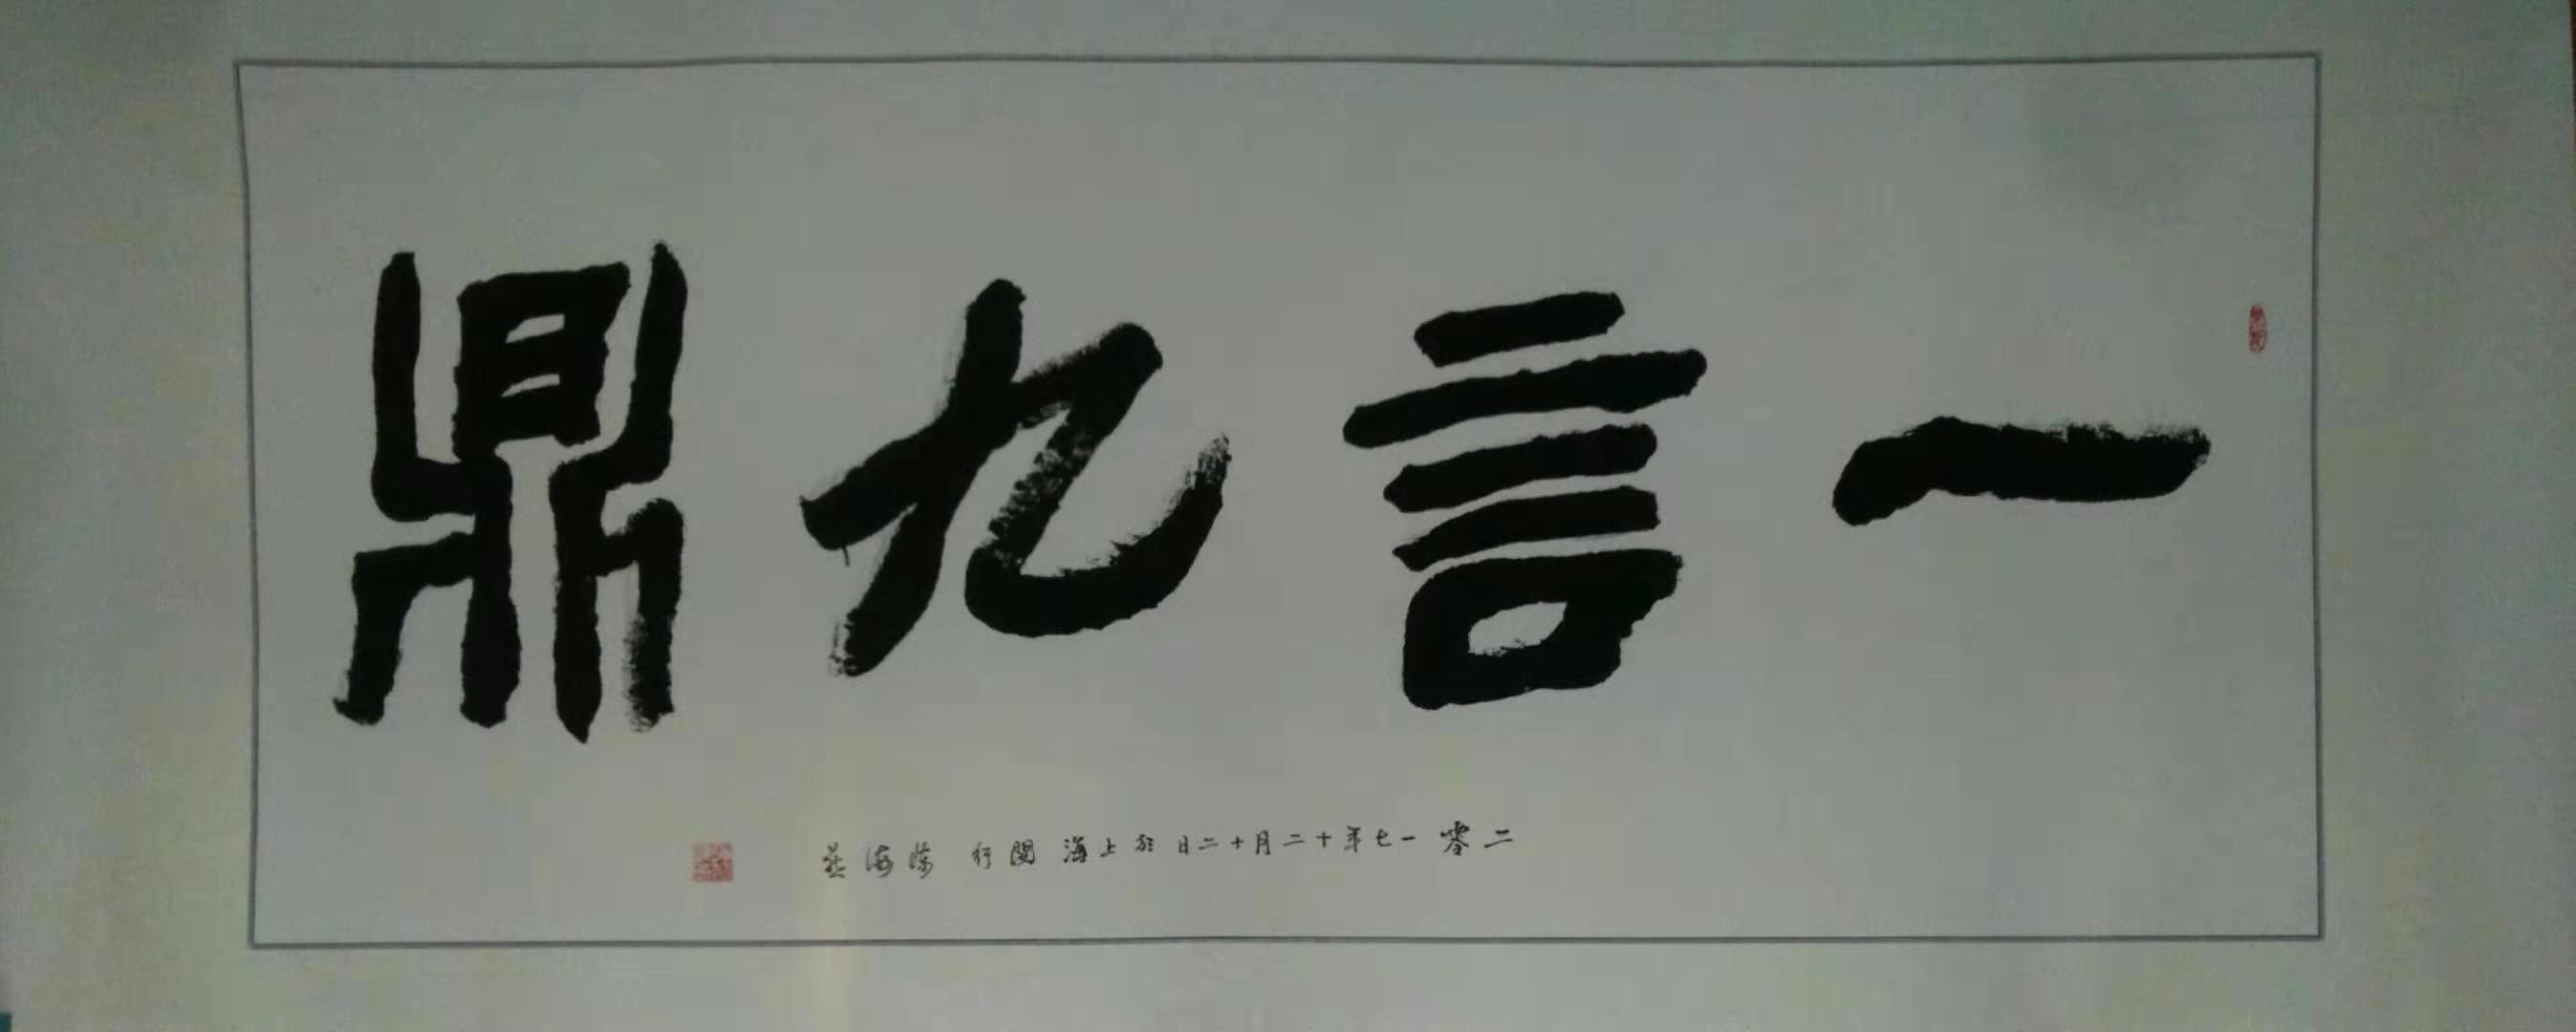 一言九鼎
二零一七年十二月十二日於上海閔行 陈海燕